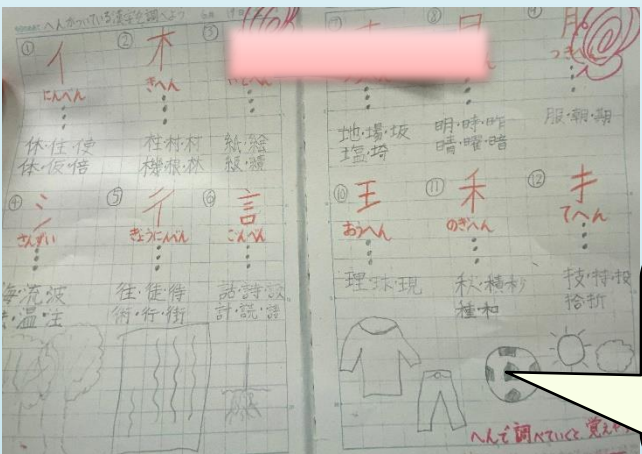 へんがついている漢字を調べよう
① イ
にんべん
休・住・使
体・仮・倍
② 木
きへん
柱・村・材
機・根・林
③
紙・絵
④ シ
さんずい
流・波
温・注
⑤ 彳
ぎょうにんべん
往・徒・待
術・行・街
⑥ 言
ごんべん
話・詩・設
計・読・語
地・場・坂
塩・埼
⑧
明・時・昨
晴・曜・暗
月
つきへん
服・朝・期
⑩ 王
おうへん
理・球・現
⑪ 禾
のぎへん
秋・積・秒
種・和
⑫ 扌
てへん
技・持・投
拾・折
へんで調べていくと、覚え